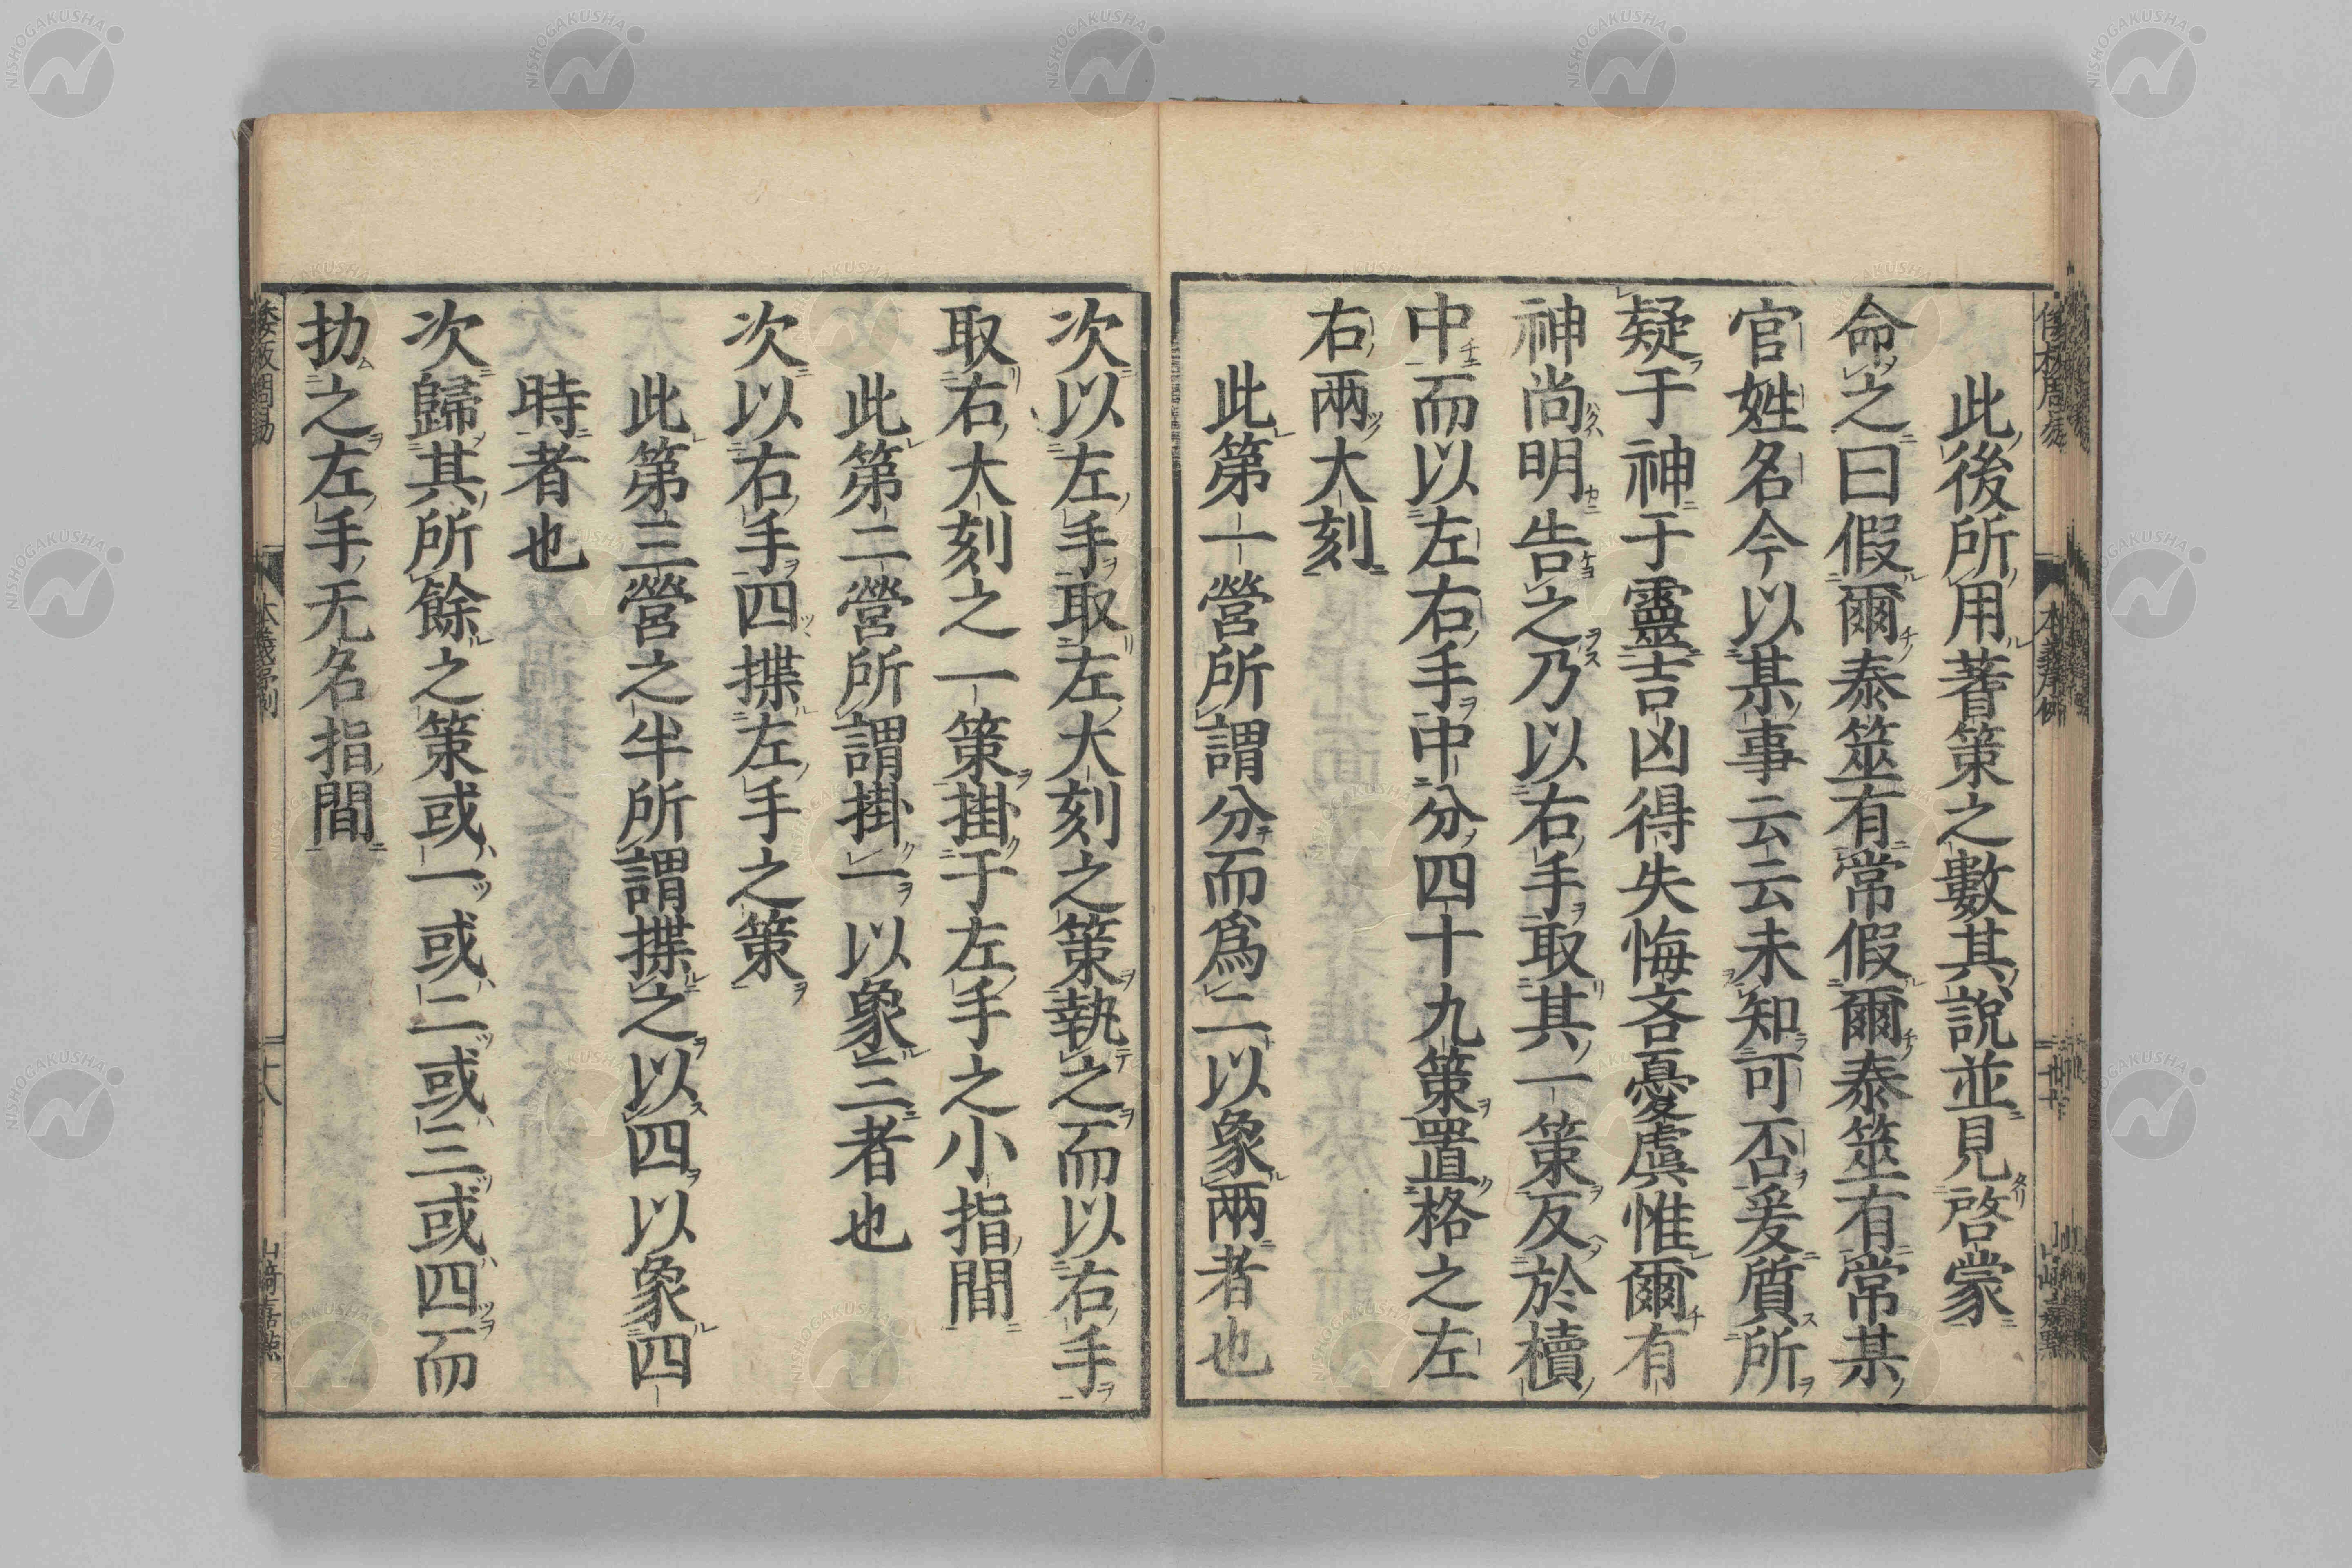 此後所用蓍策之數其說並見啓蒙
命之曰假爾泰筮有常假爾泰筮有常某
官姓名今以某事云云未知可否爰質所
疑于神于靈吉凶得失悔吝憂虞惟爾有
神尚明告之乃以右手取其一策反於櫝
中而以左右手中分四十九策置格之左
右兩大刻
此第一營所謂分而爲二以象兩者也
次以左手取左大刻之策執之而以右手
取右大刻之一策掛于左手之小指間
此第二營所謂掛一以象三者也
次以右手四揲左手之策
此第三營之半所謂揲之以四以象四
時者也
次歸其所餘之策或一或二或三或四而
扐之左手无名指間
本義序例
山崎嘉點
NISHOGAKUSHA